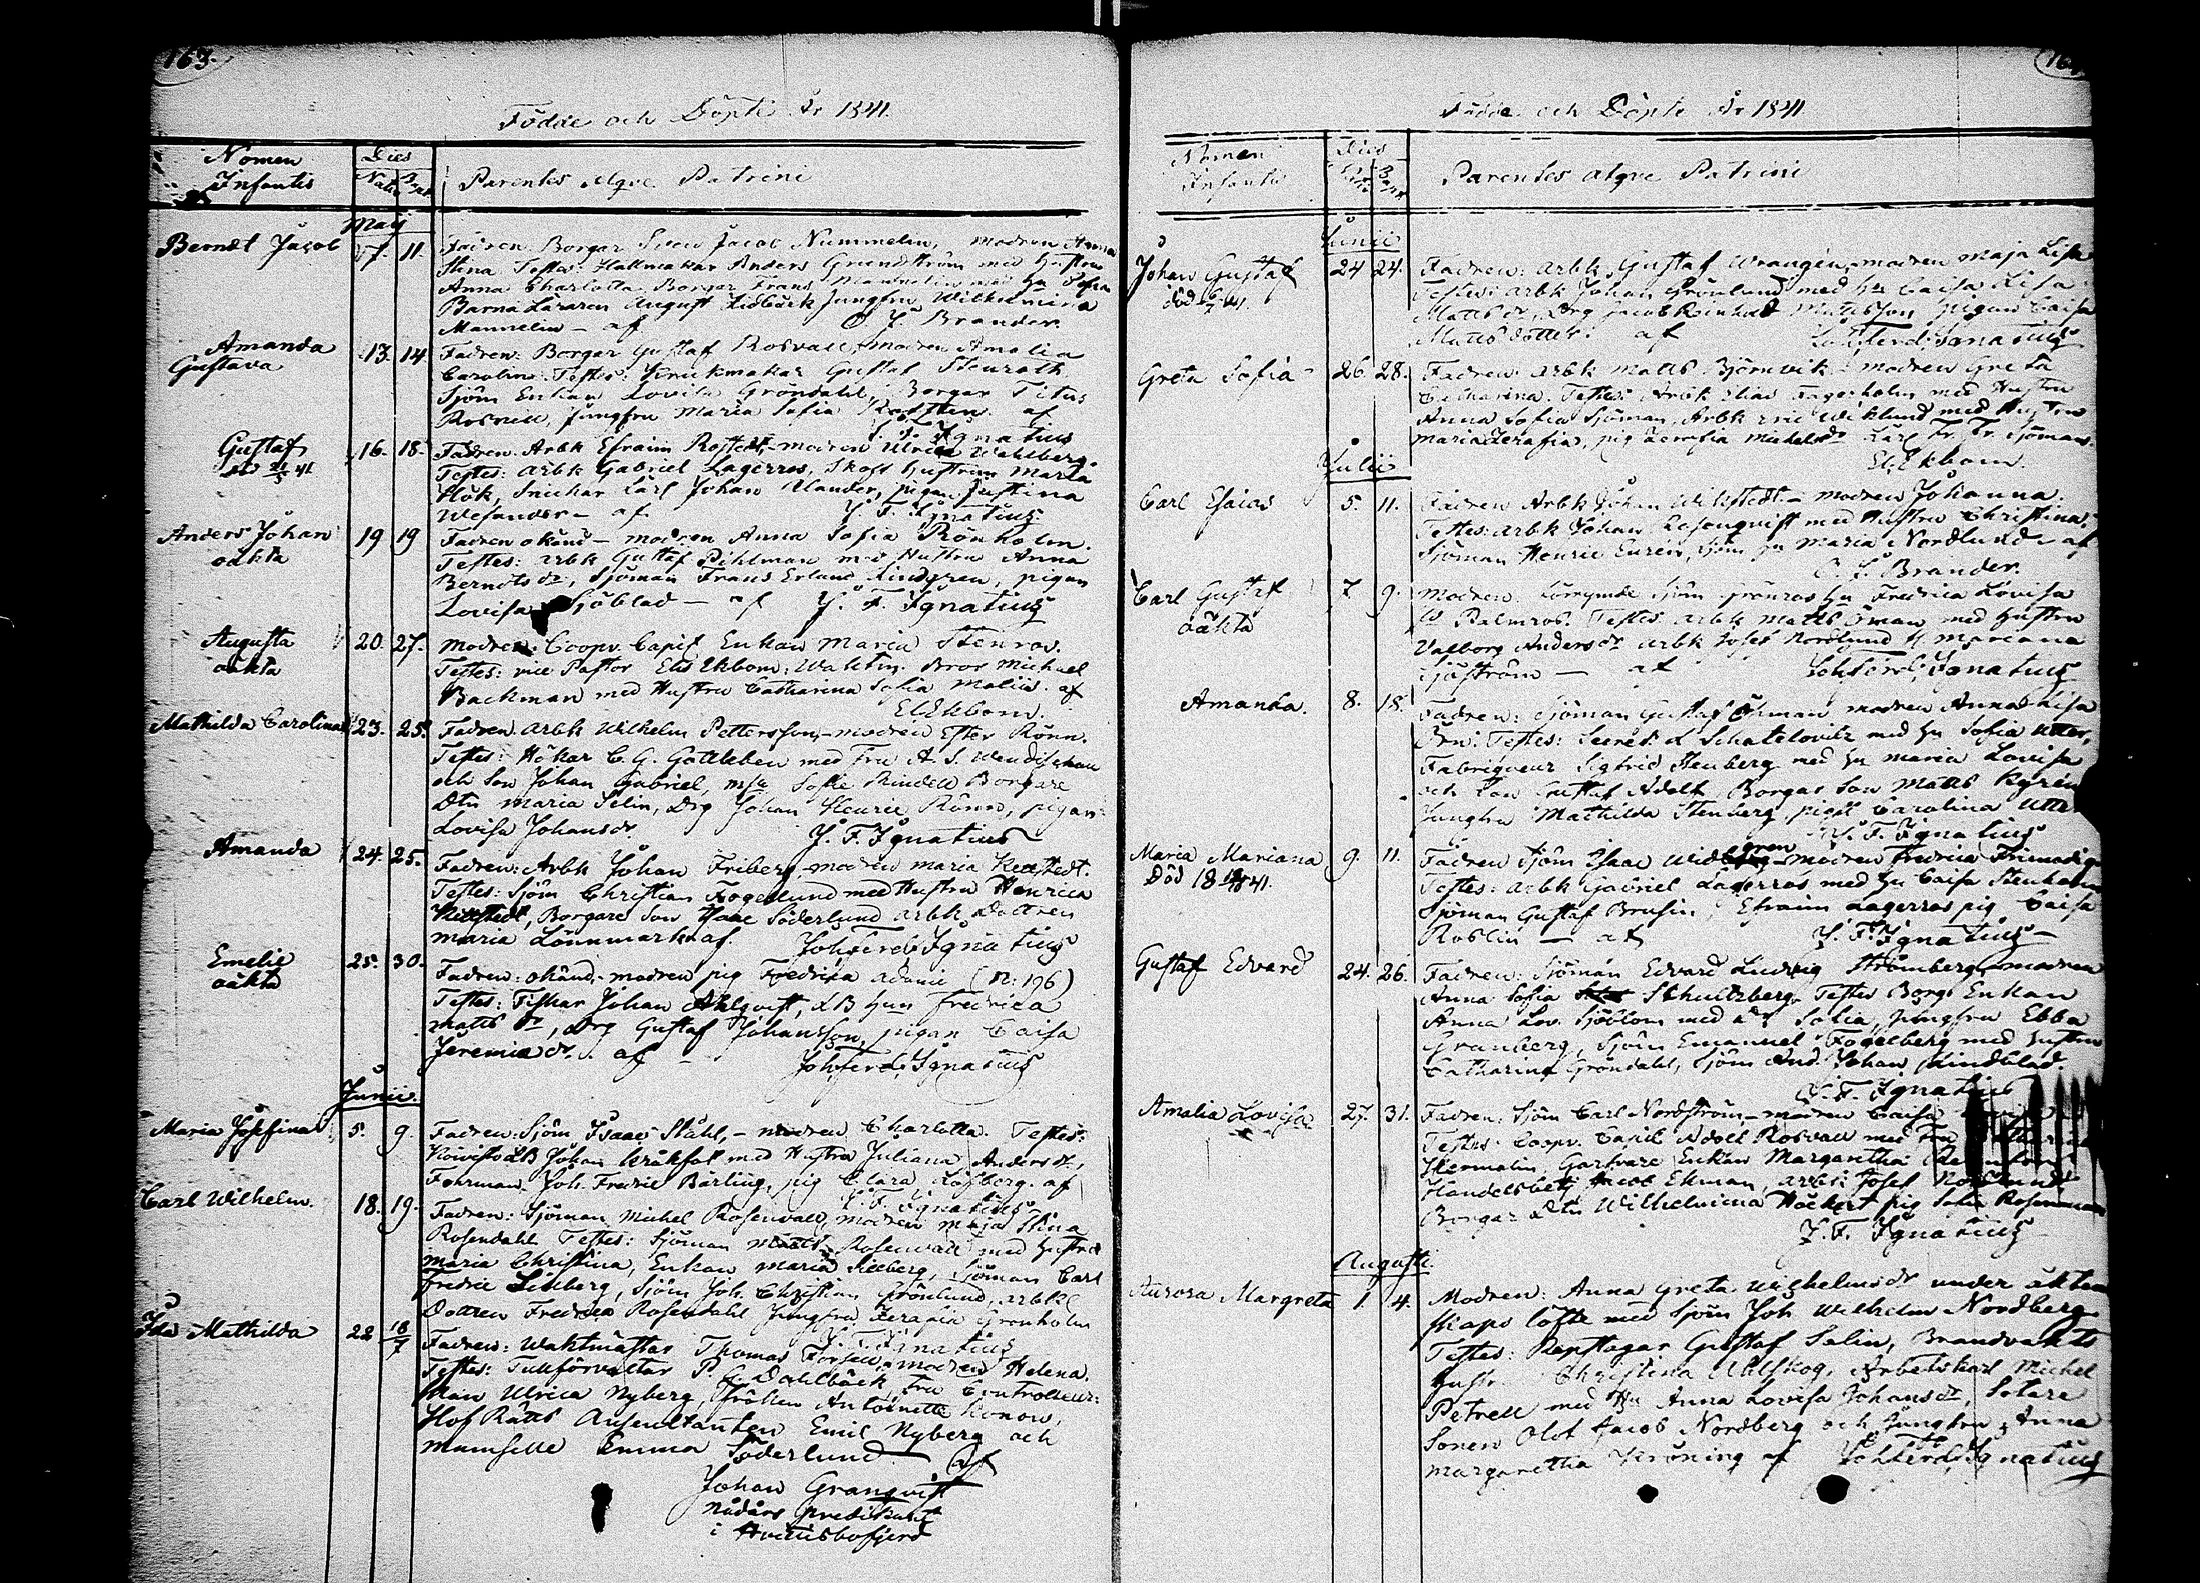 163.
Födde och Döpte År 1841.
Nomen Infantis
Dies
Nat. Bapt.
Parentes Atqve Patrini
Maij
Berndt Jacob 7. 11. Fadren Borgar Sven Jacob Nummelin, modren Anna
Stina Testes: Hattmakar Anders Grundström med hustru
Anna Charlotta, Borgar Frans Mannelin med Hu Sofia
Barna Läraren August Lidbäck Jungfru Wilhelmina
Mannelin – af Brander.
Amanda Gustava 13. 14. Fadren: Borgar Gustaf Rosvall, modren Amalia
Carolin. Testes: Gustaf Stenroth
Sjöm Enkan Lovisa Gröndahl, Borgar Titus
Rosvall, Jungfru Maria Sofia af
J. F. Ignatius
Gustaf 16. 18. Fadren: Arbk Efraim Rostedt, modren Ulrica Wahlberg.
död 41
Testes: Arbk Gabriel Lagerros, Skoft Hustrun Maria
Hök, Snickar Carl Johan Ulander, pigan Justina
Wesander – af J. F. Ignatius
Anders Johan oäkta 19 19 Fadren okänd – modren Anna Sofia Rönholm.
Testes: Arbk Gustaf Pihlman med Hustru Anna
Berndts dr, Sjöman Frans Erland Lindgren, pigan
Lovisa Sjöblad – af J. F. Ignatius
Augusta oäkta 20. 27. Modren: Coopv. Capit Enkan Maria Stenros.
Testes: vice Pastor Elis Ekbom, Waktm. Bror Michael
Backman med Hustru Catharina Sofia Malin. af
El Ekbom.
Mathilda Carolina 23. 25. Fadren Arbk Wilhelm Pettersson, – modren Ester Rönn.
Testes: Hökar C. G. Gottleben med Fru A. S. Wendischau
och Son Johan Gabriel, Sofie Rindell Borgare
Dtn Maria Selin, Drg Johan Henric Rönn, pigan
Lovisa Johansdr J. F. Ignatius
Amanda 24. 25. Fadren: Arbk Johan Friberg – modren Maria Kellstedt.
Testes: Sjöm Christian Fogellund med Hustru Henrica
Kellstedt, Borgare Son Isaac Söderlund Arbk Dottren
Maria Lönnmark af. Joh Ferd: Ignatius
Emelie oäkta 25. 30. Fadren: okänd, – modren pig Fredrika Adamie (N: 196)
Testes: Fiskar Johan Ahlqvist, LB Hun Fredrica
Matts dr, Drg Gustaf Johansson, pigan Caisa
Jeremiædr. af Joh Ferd: Ignatius
Junii.
Maria Josefina 5. 9. Fadren: Sjöm Isaac Ståhl, – modren Charlotta. Testes:
Koivisto LB Johan Kråkfot med Hustru Juliana Andersdr.,
Fohrman Joh. Fredric Barling, pig Clara af
J. F. Ignatius
Carl Wilhelm. 18. 19. Fadren: Sjöman Michel Rosenvall, modren Maja Stina
Rosendahl Testes: Sjöman Matts Rosenvall med Hustru
Maria Christina, Enkan Maria Sjöman Carl
Fredric Sjöm Joh. Christian Grönlund, Arbk
Dottren Fredrica Rosendahl Jungfru Serafia Grönholm
J. F. Ignatius
Ida Mathilda 22 18/7 Fadren: Waktmästar Thomas Forsell, modren Helena.
Testes: Tullförvaltar P. C. Dahlbäck, Fru Controlleur:
skan Ulrica Nyberg, Fröken Antoinette Konow,
Hof Rätts Auscultanten Emil Nyberg och
Mamselle Emma Söderlund – af
Johan Granqvist
Nådårs predikant
i Hvittisbofjerd
Födde och Döpte År 1841
Nomen Infantis
Dies
Parentes atqve Patrini
Junii
Johan Gustaf 24 24. Fadren: Arbk Gustaf Wrangén, modren Maja Lisa
död 41.
Testes: Arbk Johan Grönlund med Hu Caisa Lisa
Mattsdr, Drg Jacob Reinhold Mattsson pigan Caisa
Mattsdotter. af Joh Ferd: Ignatius
Greta Sofia 26. 28. Fadren: Arbk Matts Björnvik – modren Greta
Catharina. Testes: Arbk Elias Fagerholm med Hustru
Anna Sofia Sjöman, Arbk Eric Wiklund med Hustru
Maria Serafia, pig Serafia Michelsdr Carl Fr. Fr. Sjöman.
El. Ekbom.
Julii
Carl Esaias 5. 11. Fadren Arbk Johan Wikstedt – modren Johanna.
Testes: Arbk Johan med Hustru Christina,
Sjöman Henric Eurén, Sjöm Hu Maria Nordlund – af
Brander.
Carl Gustaf oäkta 7. 9. Modren: Sjöm Grönros Hu Fredrica Lovisa
Palmros. Testes: Arbk Matts Öman med Hustru
Valborg Andersdr Arbk Josef Nordlund Mariana
Sjöström – af Joh Ferd: Ignatius
Amanda. 8. 18. Fadren: Sjöman Gustaf Öhman modren Anna Lisa
Testes: Secret: L Schatelovitz med Hu Sofia Utter,
Fabriqueur Sigfrid Stenberg med Hu Maria Lovisa
och Son Gustaf Adolf, Borgar Son Matts Kyrén
Jungfru Mathilda Stenberg, pigan Carolina Utter
J. F. Ignatius
Maria Mariana 9. 11. Fadren Sjöm Isaac Widgren – modren Fredrica
Död 41.
Testes: Arbk Gabriel Lagerros med Hu Caisa Stenholm
Sjöman Gustaf Brusin, Efraim Lagerros pig Caisa
Roslin – af J. F. Ignatius –
Gustaf Edvard 24. 26. Fadren: Sjöman Edvard Ludvig Strömberg, modren
Anna Sofia Schultzberg. Testes Borg: Enkan
Anna Lov. Sjöblom med Sofia, Jungfru Ebba
Granberg, Sjöm Emanuel Fogelberg med Hustru
Catharina Gröndahl, Sjöm And. Johan Lindblad.
J. F. Ignatius
Amalia Lovisa 27. 31. Fadren: Sjöm Carl Nordström, – modren Caisa
Testes: Coopv. Capit Adolf Rosvall med Fru
Hermalin, Garfvare Enkan Margaretha
Handelsbetj Jacob Ekman, Arbk Josef
Borgar Dtn Wilhelmina Höckert pig
J. F. Ignatius
Augusti.
Aurora Margreta 1. 4. Modren: Anna Greta Wilhelmsdr under äkten
skaps löfte med Sjöm Joh Wilhelm Nordberg
Testes: Repslagar Gustaf Salin, Brandvakts
Hustr. Christina Ulfskog, Arbetskarl Michel
Petrell med Hu Anna Lovisa Johansdr, Sotare
Sonen Olof Jacob Nordberg och Jungfru Anna
Margaretha Kröning af Joh Ferd: Ignatius